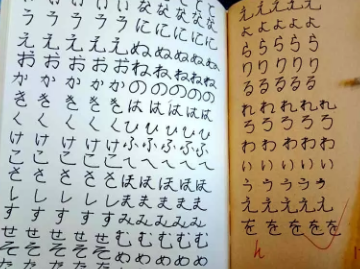 い な な な な
う う う う に に に に
え え え え ぬ ぬ ぬ ぬ
お お お お ね ね ね ね
か か か か の の の の
き き き き は は は は
く く く く ひ ひ ひ ひ
け け け け ふ ふ ふ ふ
こ こ こ こ へ へ へ へ
さ さ さ さ ほ ほ ほ ほ
し し し し ま ま ま ま
す す す す み み み み
せ せ せ せ む む む む
そ そ そ そ め め め め
え え え え え
よ よ よ よ よ
ら ら ら ら ら
り り り り り
る る る る る
れ れ れ れ れ
ろ ろ ろ ろ ろ
わ わ わ わ わ
い い い い い
う う う う う
え え え え え
を を を を を
ん